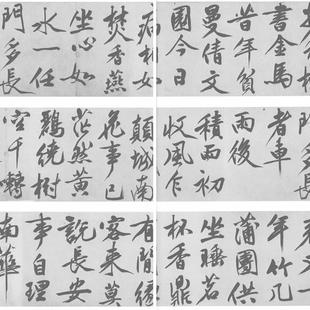 書金馬
昔年貧
曼倩文
園今日
病相如
焚香燕
坐心如
水一任
門多長
門多長
者車
雨後
積雨初
收風乍
顛城南
花事已
茫然黄
鸝繞樹
空千囀
春又一
年竹几
蒲團供
坐睡茗
杯香鼎
有閒緣
客來莫
說長安
事自理
南華